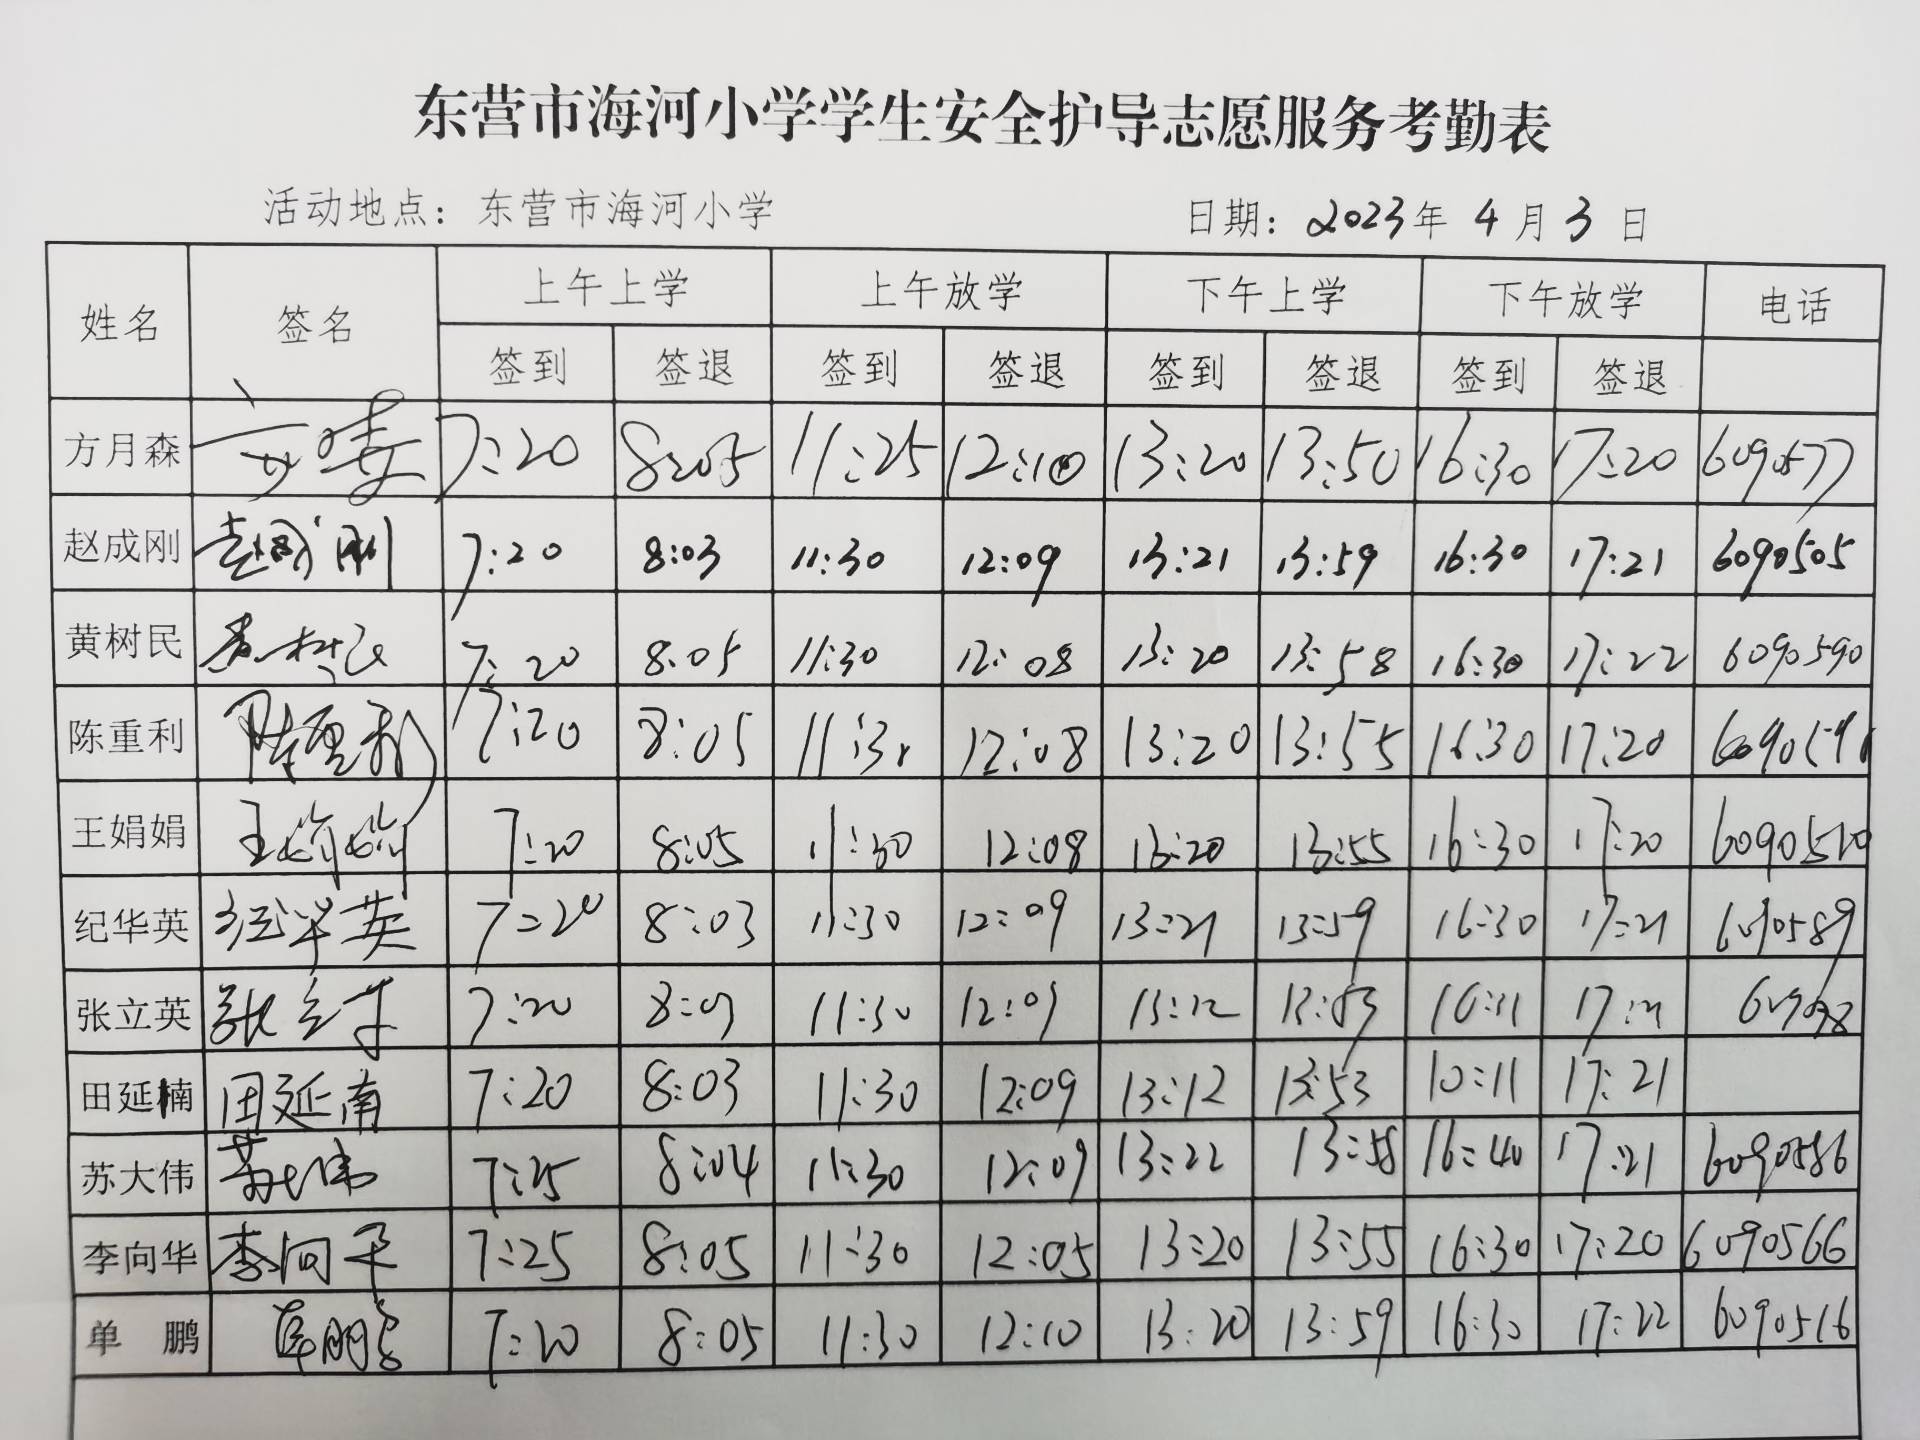 东营市海河小学学生安全护导志愿服务考勤表
活动地点：东营市海河小学 日期：2023年 4月 3日
姓名 签名 上午上学 上午放学 下午上学 下午放学 电话
签到 签退 签到 签退 签到 签退 签到 签退
方月森 7:20 8:05 11:25 12:10 13:20 13:50 16:30 17:20 6090577
赵成刚 赵成刚 7:20 8:03 11:30 12:09 13:21 13:59 16:30 17:21 6090505
黄树民 黄树民 7:20 8:05 11:30 12:08 13:20 13:58 16:30 17:22 6090590
陈重利 陈重利 7:20 8:05 12:08 13:20 13:55 16:30 17:20
王娟娟 王娟娟 7:20 8:05 11:30 12:08 13:20 13:55 16:30 17:20 6090510
纪华英 纪华英 7:20 8:03 11:30 12:09 13:21 13:59 16:30 17:21 6090589
张立英 张立英 7:20 8:03 11:30 12:09 13:12 13:53 10:11 17:21
田延楠 田延南 7:20 8:03 11:30 12:09 13:12 13:53 10:11 17:21
苏大伟 苏大伟 7:25 8:04 11:30 12:09 13:22 13:58 16:40 17:21 6090586
李向华 李向华 7:25 8:05 11:30 12:05 13:20 13:55 16:30 17:20 6090566
单 鹏 单鹏 7:20 8:05 11:30 12:10 13:20 13:59 16:30 17:22 6090516